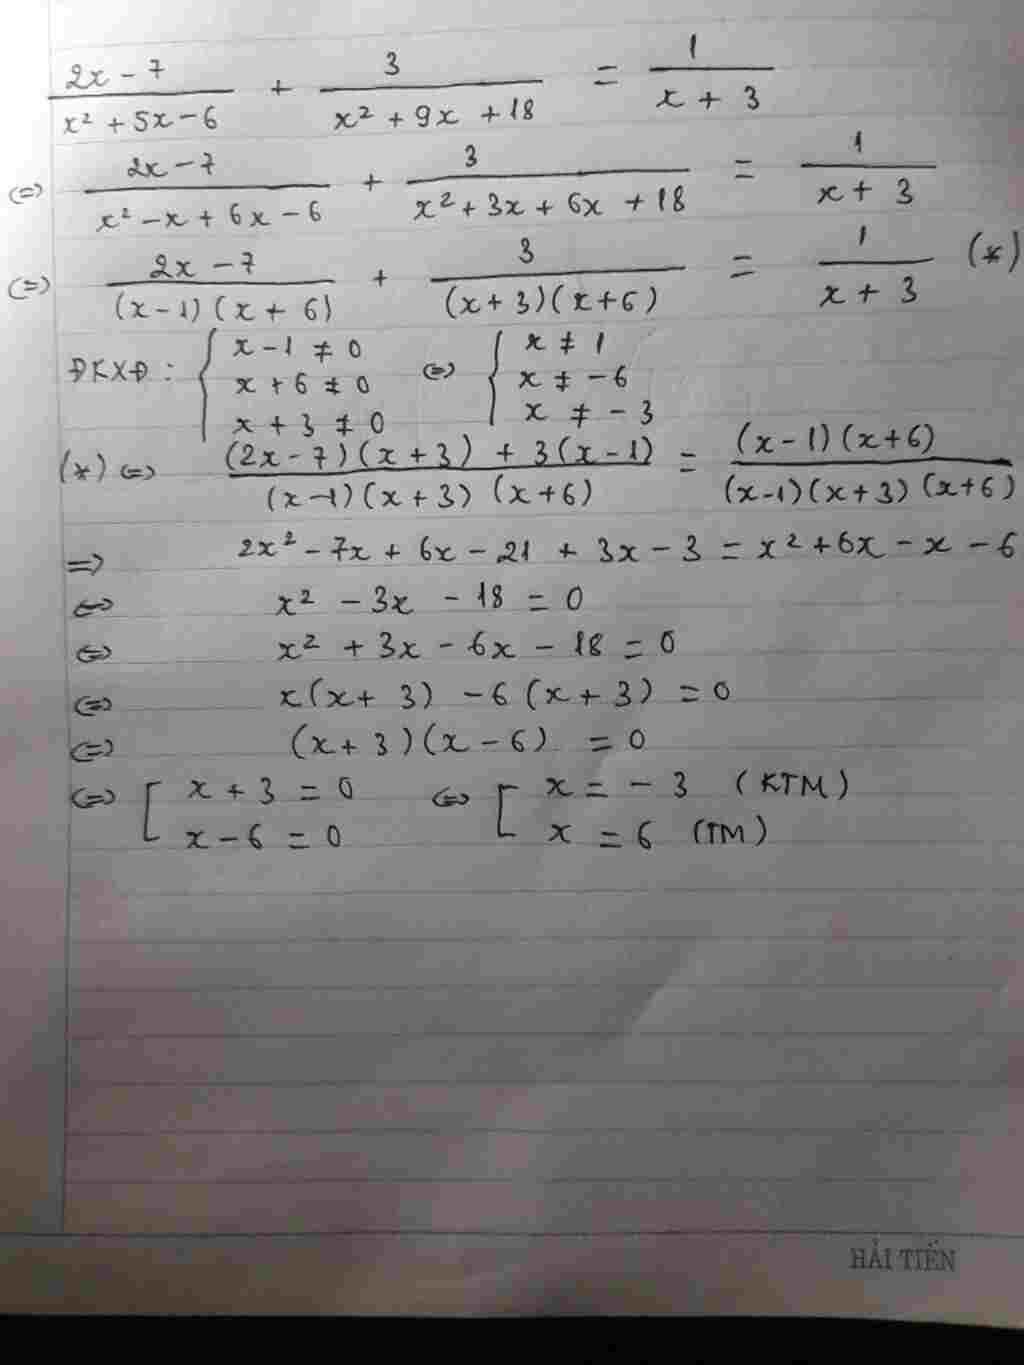 2x - 7 / x² + 5x - 6 + 3 / x² + 9x + 18 = 1 / x + 3
(=) 2x - 7 / x² - x + 6x - 6 + 3 / x² + 3x + 6x + 18 = 1 / x + 3
(=) 2x - 7 / (x-1)(x + 6) + 3 / (x+3)(x+6) = 1 / x + 3 (*)
ĐKXĐ: { x - 1 ≠ 0 <=> { x ≠ 1
x + 6 ≠ 0 x ≠ -6
x + 3 ≠ 0 x ≠ -3
(*) <=> (2x - 7)(x + 3) + 3(x - 1) / (x-1)(x+3)(x+6) = (x - 1)(x+6) / (x-1)(x+3)(x+6)
=> 2x² - 7x + 6x - 21 + 3x - 3 = x² + 6x - x - 6
<=> x² - 3x - 18 = 0
<=> x² + 3x - 6x - 18 = 0
<=> x(x + 3) - 6(x + 3) = 0
<=> (x+3)(x-6) = 0
<=> [ x + 3 = 0 <=> [ x = -3 (KTM)
x - 6 = 0 x = 6 (TM)
HẢI TIẾN